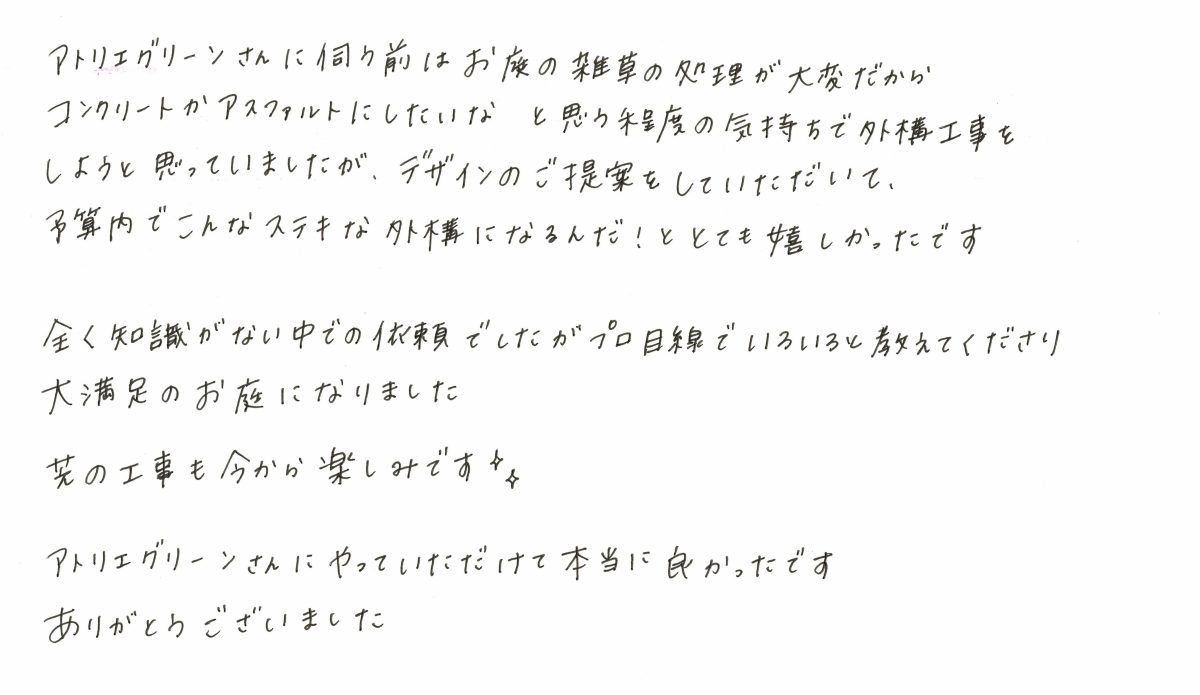 アトリエグリーンさんに伺う前はお庭の雑草の処理が大変だから
コンクリートかアスファルトにしたいな と思う程度の気持ちで外構工事を
しようと思っていましたが、デザインのご提案をしていただいて、
予算内でこんなステキな外構になるんだ！ととても嬉しかったです
全く知識がない中での依頼でしたがプロ目線でいろいろと教えてくださり
大満足のお庭になりました
芝の工事も今から楽しみです
アトリエグリーンさんにやっていただけて本当に良かったです
ありがとうございました